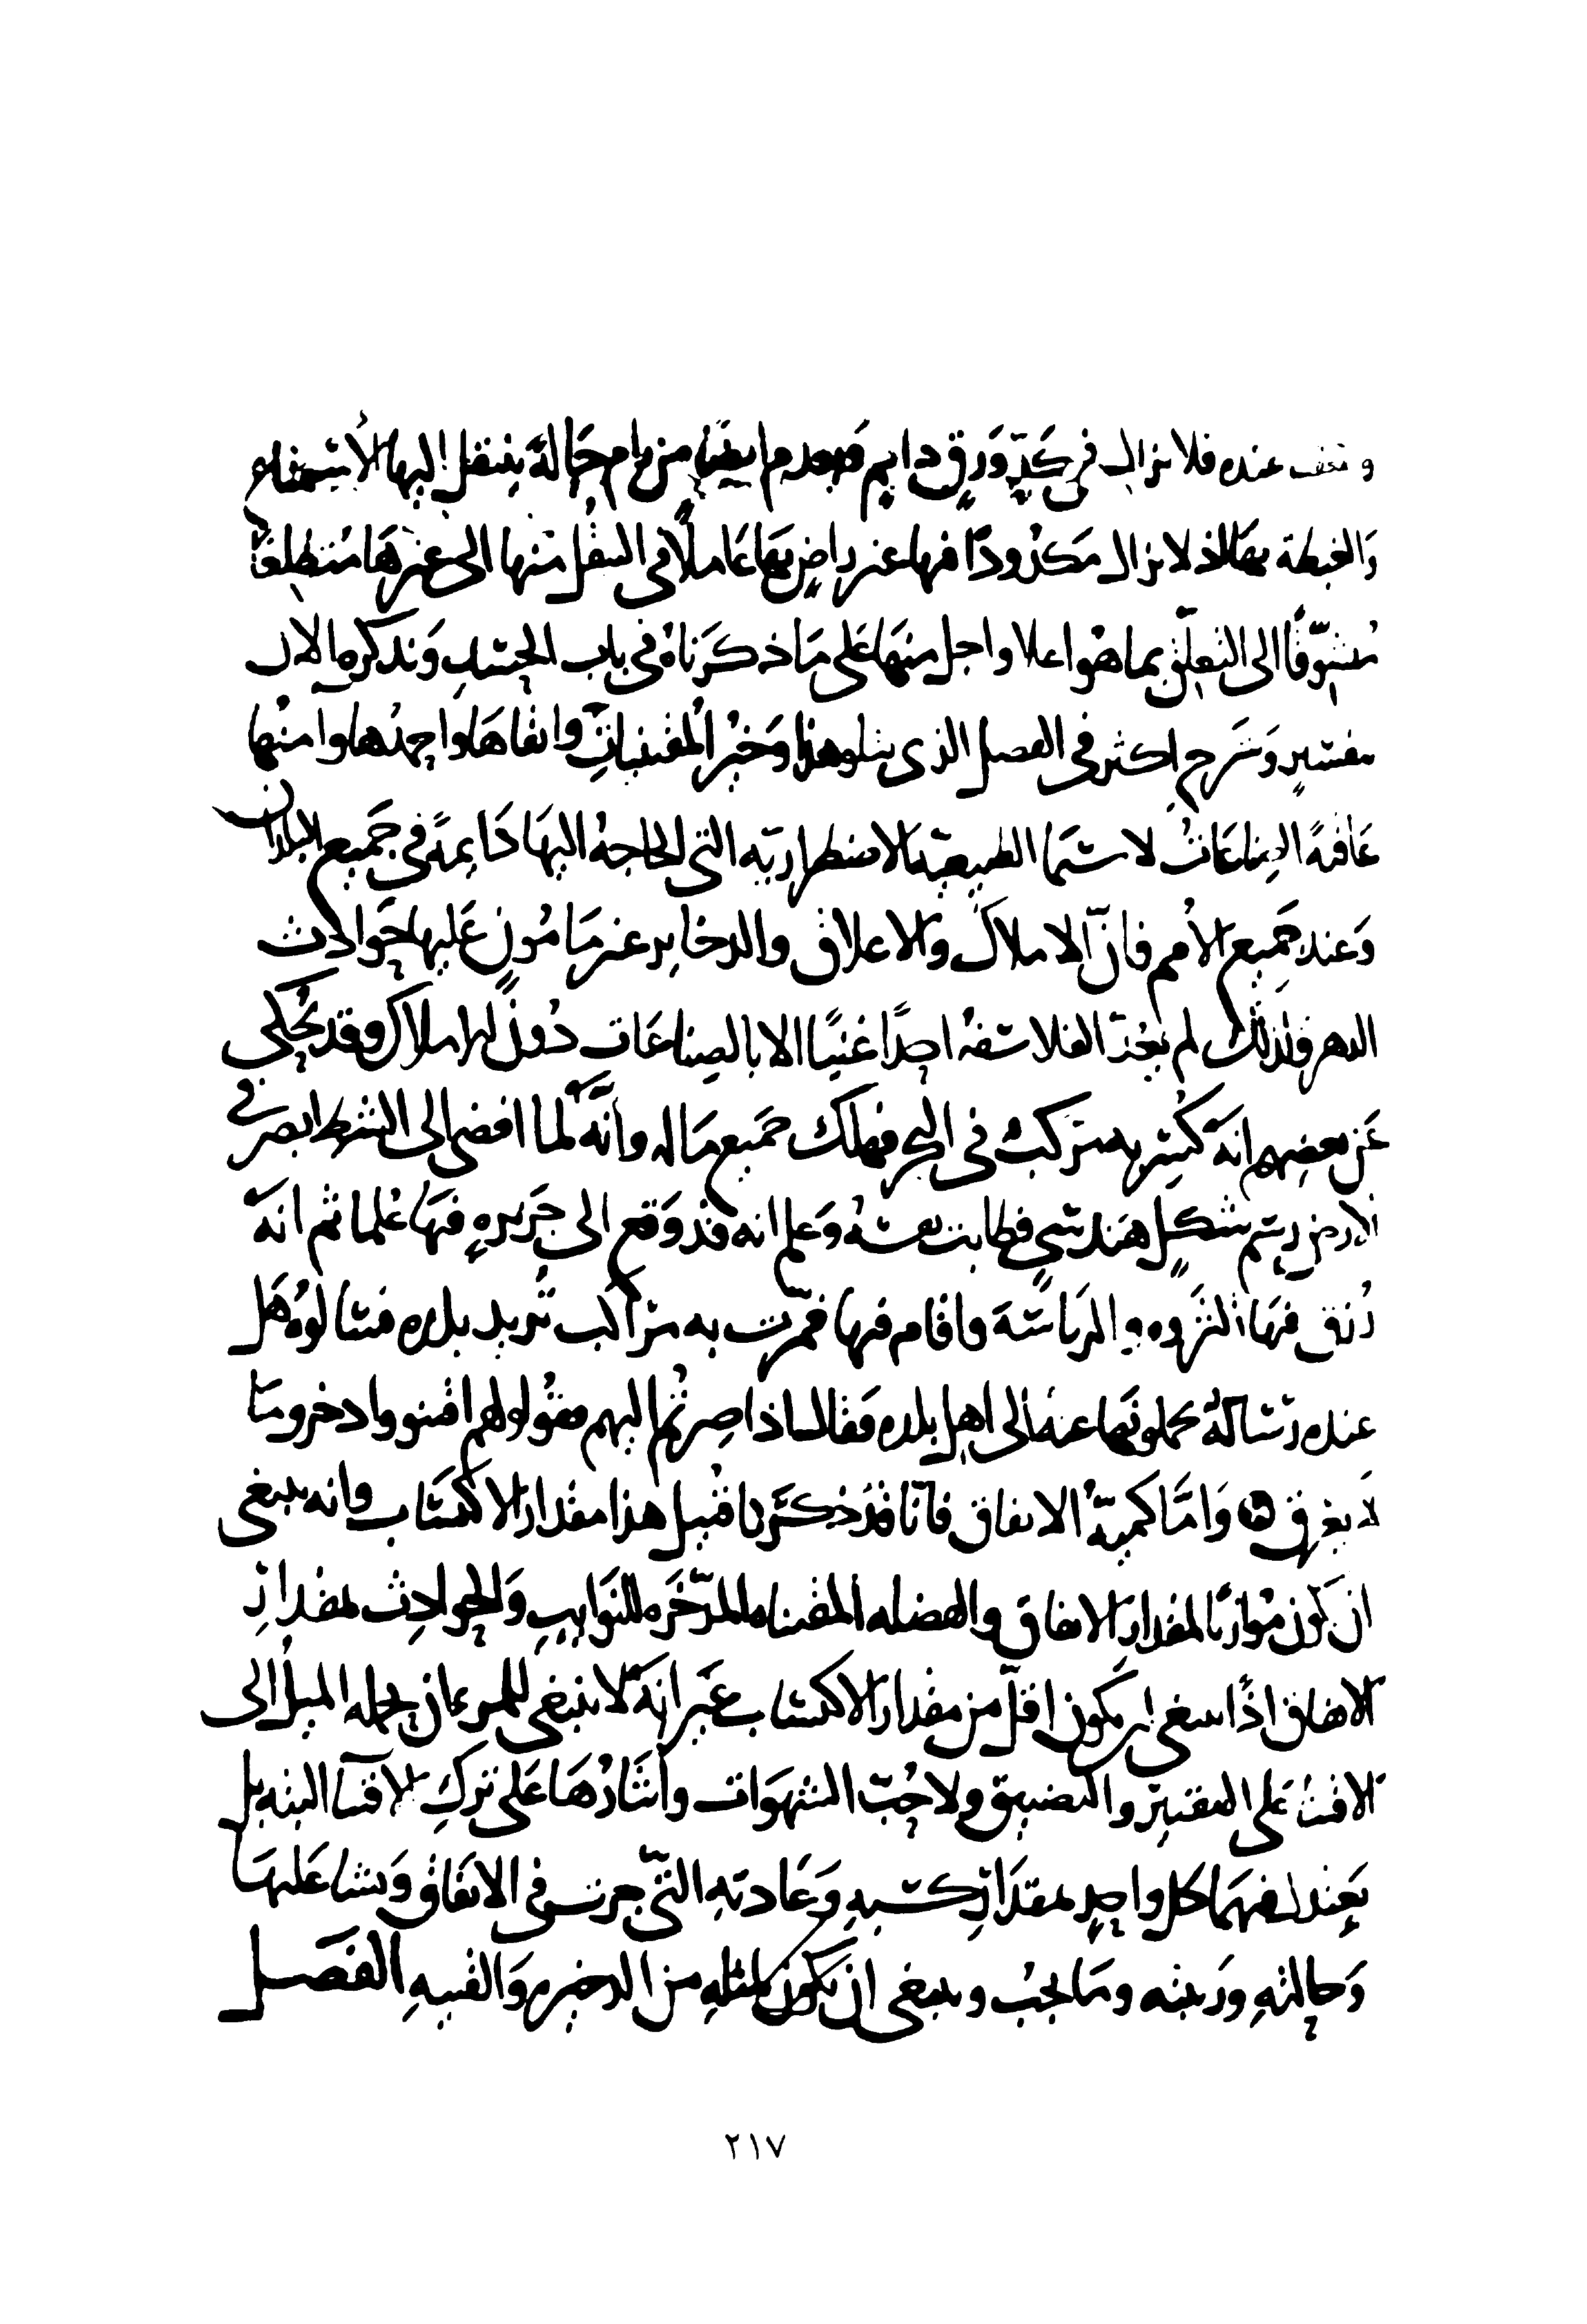 و يقف عنده فلا يزال في كدٍّ ورقٍ دايمٍ ويعدم ايضًا من رام حالة ينتقل اليها الاستمتاع
والغبطة بها اذ لا يزال مكدودًا فيها غير راضٍ بها عاملًا في التنقل منها الى غيرها متطلعًا
متشوّقًا الى التعلّق بما هو اعلا واجل منها على ما ذكرناه في باب الحسد ونذكره الان
بتفسيرٍ وشرحٍ اكثر في الفصل الذي يتلو هذا وخير المقتنيات وابقاها واحمدها وآمنها
عاقبةً الصناعات لا سيما الطبيعية الاضطرارية التي الحاجة اليها دايمةً في جميع البلدان
وعند جميع الأمم فانّ الاملاك والاعلاق والدخاير غير مامونٍ عليها حوادث
الدهر ولذلك لم يعدّ الفلاسفة احدًا غنيًا الا بالصناعات دون الاملاك وقد يُحكى
عن بعضهم انه كُسر به مركب في البحر فهلك جميع ماله وانّه لما افضى الى الشط ابصر في
الارض رسم شكلٍ هندسيٍ فطابت نفسه وعلم انه قد وقع الى جزيرهٍ فيها علما ثم انه
رُزق فيها الثروه والرياسة واقام فيها فمرّت به مراكب تريد بلده فسالوه هل
عنده رسالة يحملونها عنه الى اهل بلده فقال اذا صرتُم اليهم فقولوا لهم اقتنوا وادخروا ما
لا يغرق ۞ وامّا كميّة الانفاق فانّا قد ذكرنا قبيل هذا مقدار الاكتساب وانه ينبغي
ان يكون موازيًا لمقدار الانفاق والفضله المقتناه المدّخره للنوايب والحوادث لمقدار
الانفاق اذًا ينبغي ان يكون اقلّ من مقدار الاكتساب غير انه لا ينبغي للمرء ان يحمله الميل الى
الاقتناء على التقتير والتضييق ولا حُبّ الشهوات وايثارُها على ترك الاقتنا البته بل
يعتدل فيهما كل واحدٍ بمقدار كسبهِ وعادتهِ التي جرت في الانفاق ونشا عليها
وحالتهِ ورتبته وما يجب وينبغي ان يكون لمثلهِ من الدخيره والقنيهِ الفصل
٢١٧